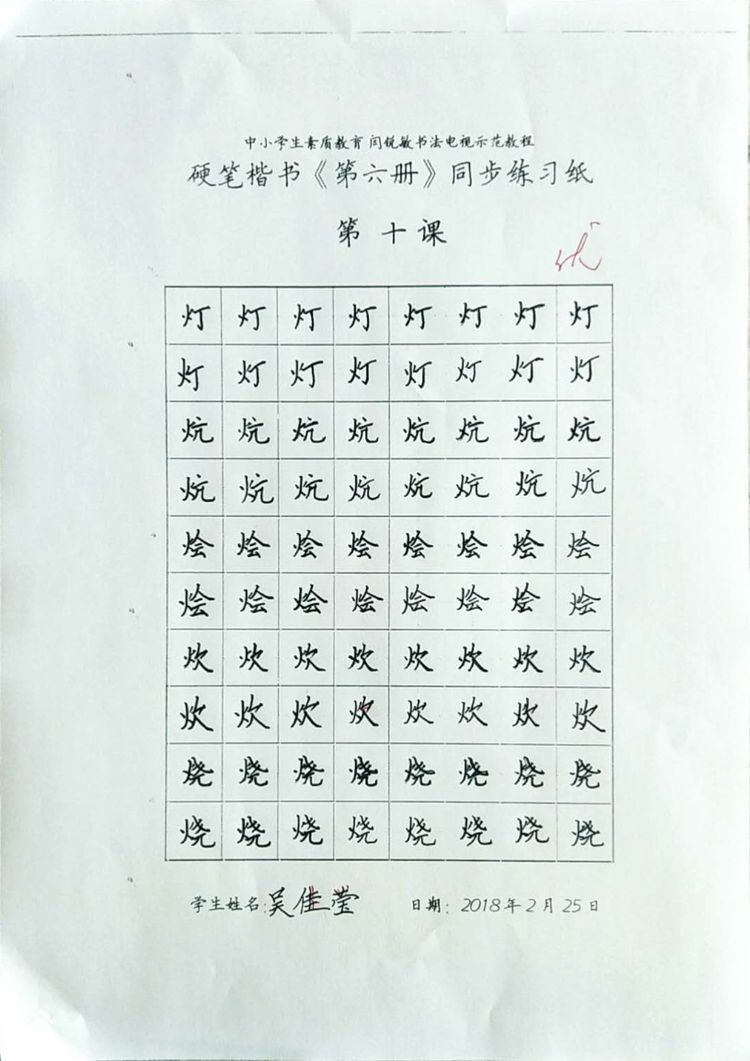 中小学生素质教育闫锐敏书法电视示范教程
硬笔楷书《第六册》同步练习纸
第十课
优
灯灯灯灯灯灯灯灯
灯灯灯灯灯灯灯灯
炕炕炕炕炕炕炕炕
炕炕炕炕炕炕炕炕
烩烩烩烩烩烩烩烩
烩烩烩烩烩烩烩烩
炊炊炊炊炊炊炊炊
炊炊炊炊炊炊炊炊
烧烧烧烧烧烧烧烧
烧烧烧烧烧烧烧烧
学生姓名:吴佳莹 日期: 2018年2月25日